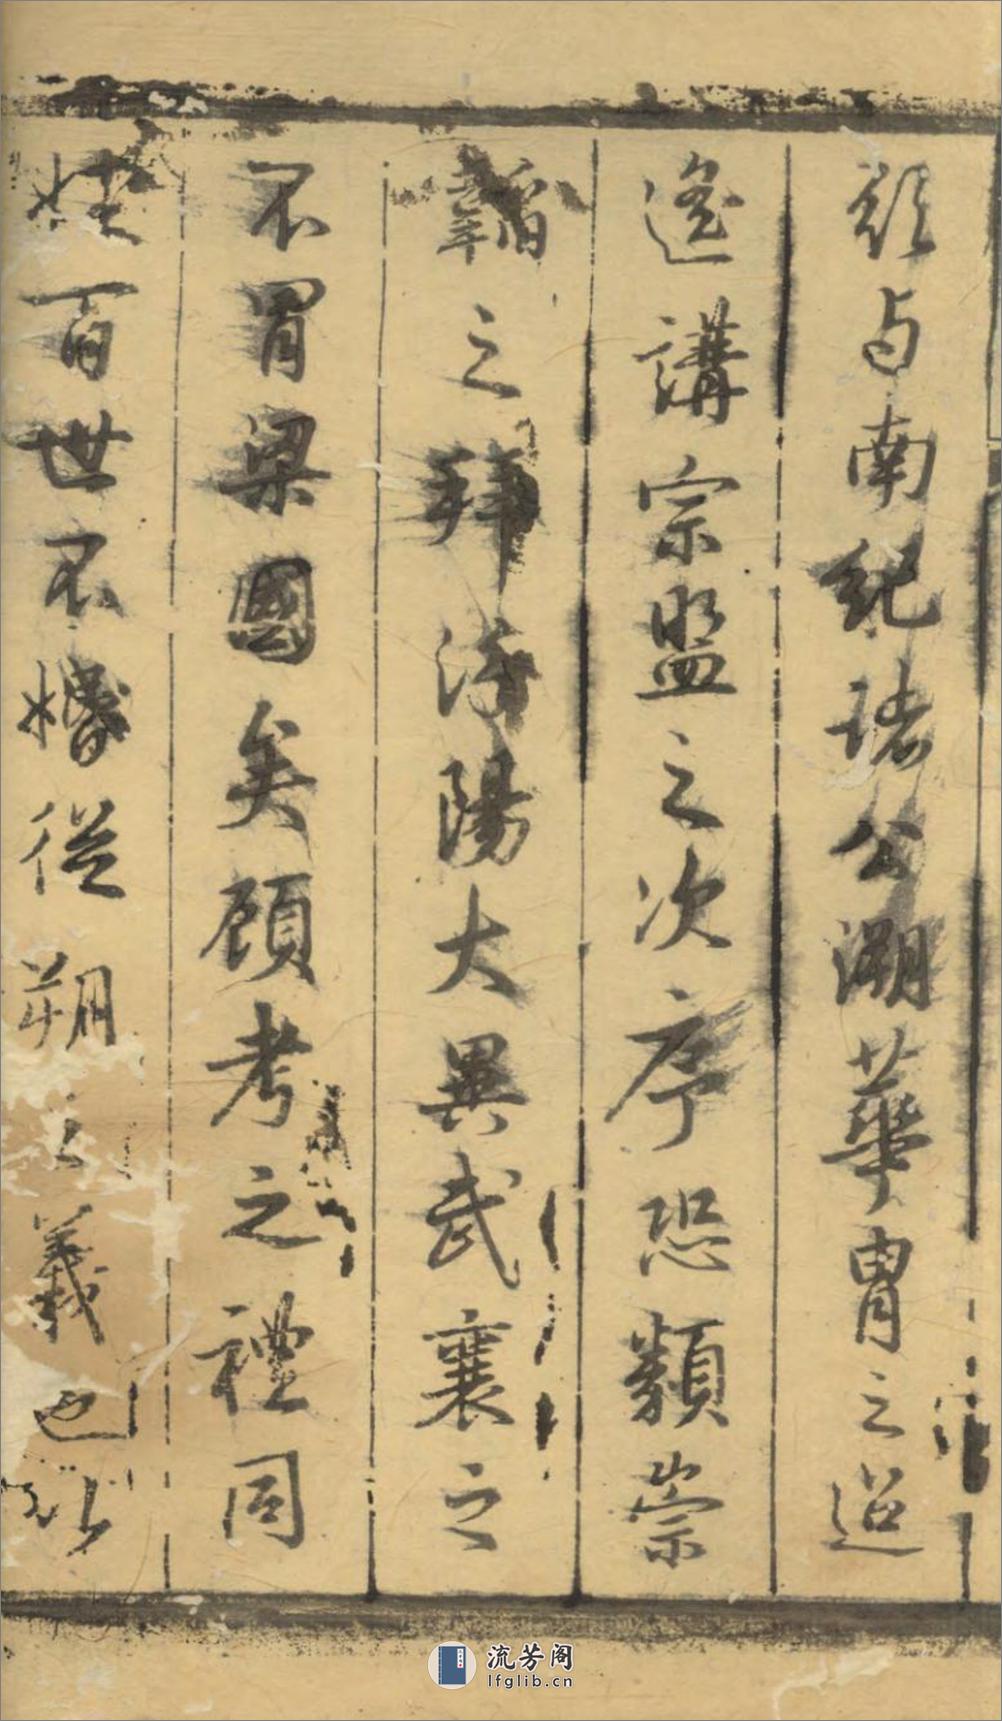 顔与南紀諸公溯華胄之迢
遙講宗盟之次序恐類崇
韜之拜汾陽大異武襄之
不冒梁國矣顧考之禮同
姓百世不婚從朔之義也以
流芳阁
lfglib.cn